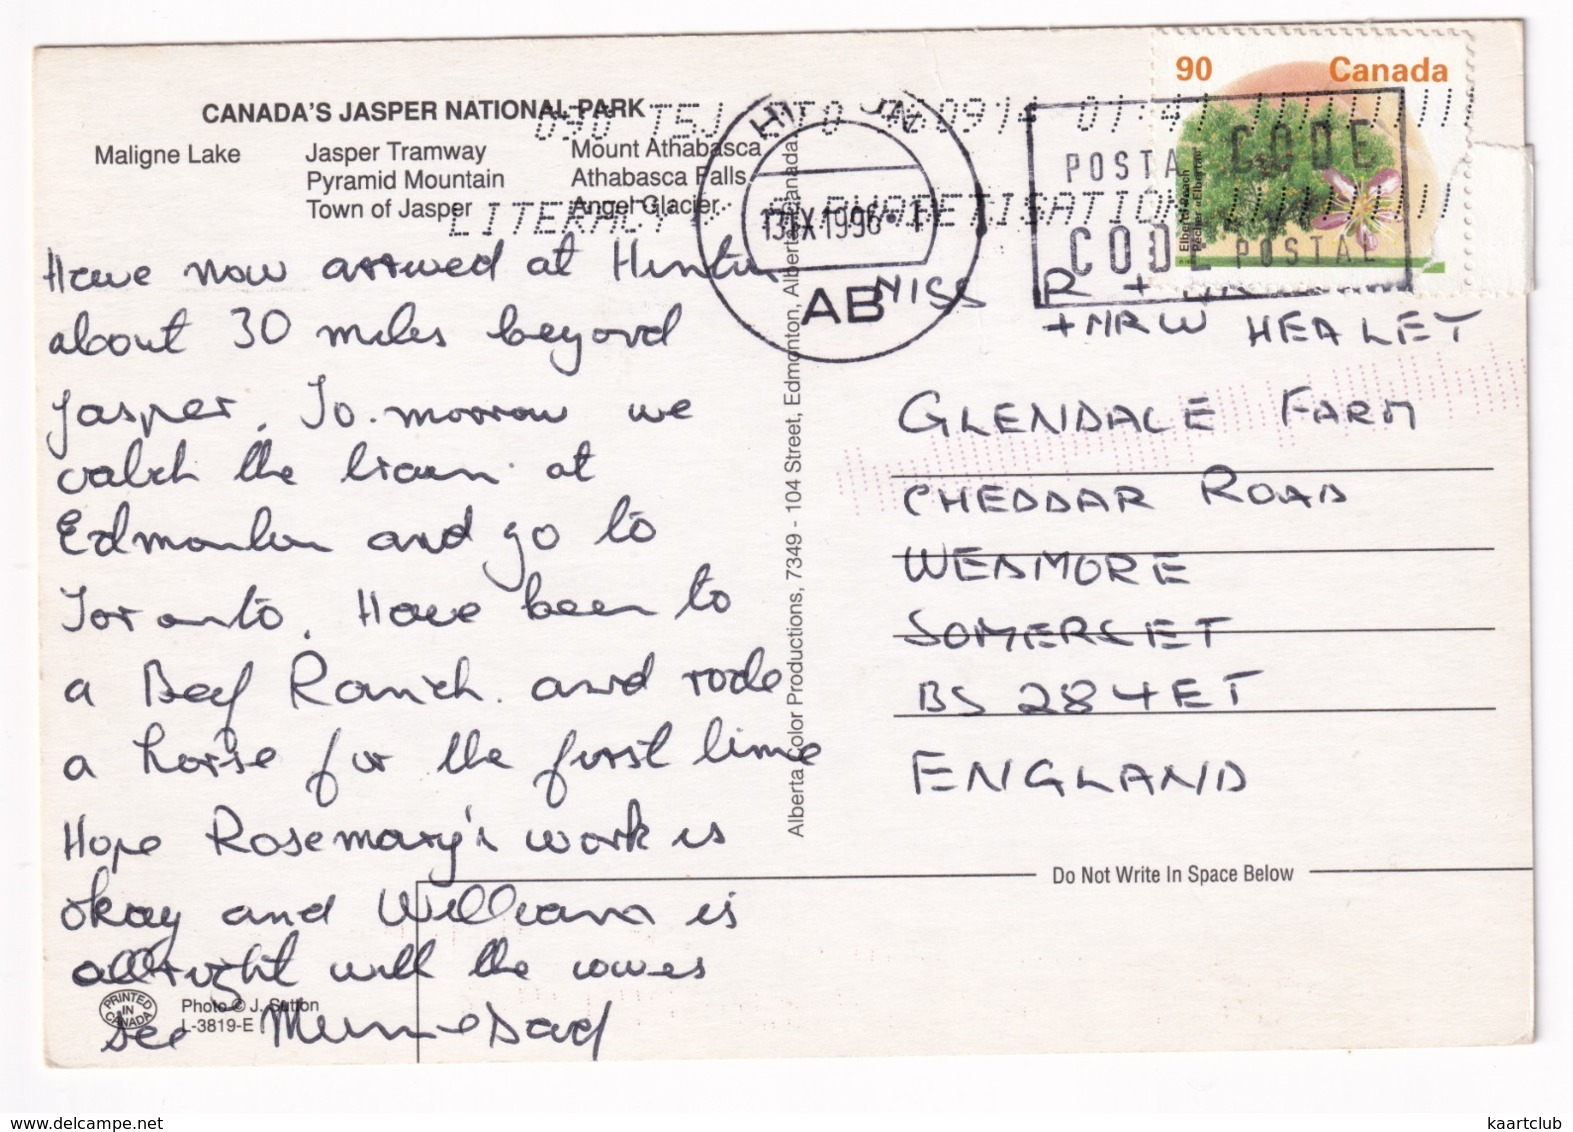 CANADA'S JASPER NATIONAL PARK
Maligne Lake
Jasper Tramway
Pyramid Mountain
Town of Jasper
Mount Athabasca
Athabasca Falls
Angel Glacier
LITERACY ALPHABETISATION
13 IX 1996
AB
POSTAL CODE
CODE POSTAL
90 Canada
Elberta peach
Pêcher «Elberta»
Have now arrived at Hinton
about 30 miles beyond
Jasper. To-morrow we
catch the train at
Edmonton and go to
Toronto. Have been to
a Beef Ranch and rode
a horse for the first time
Hope Rosemary's work is
okay and William is
allright with the cows
See Mum + Dad
Alberta Color Productions, 7349 - 104 Street, Edmonton, Alberta, Canada
MISS R +
+ MR W HEALEY
GLENDALE FARM
CHEDDAR ROAD
WEDMORE
SOMERSET
BS 28 4ET
ENGLAND
Do Not Write In Space Below
PRINTED IN CANADA
Photo © J. Sutton
L-3819-E
www.delcampe.net
kaartclub